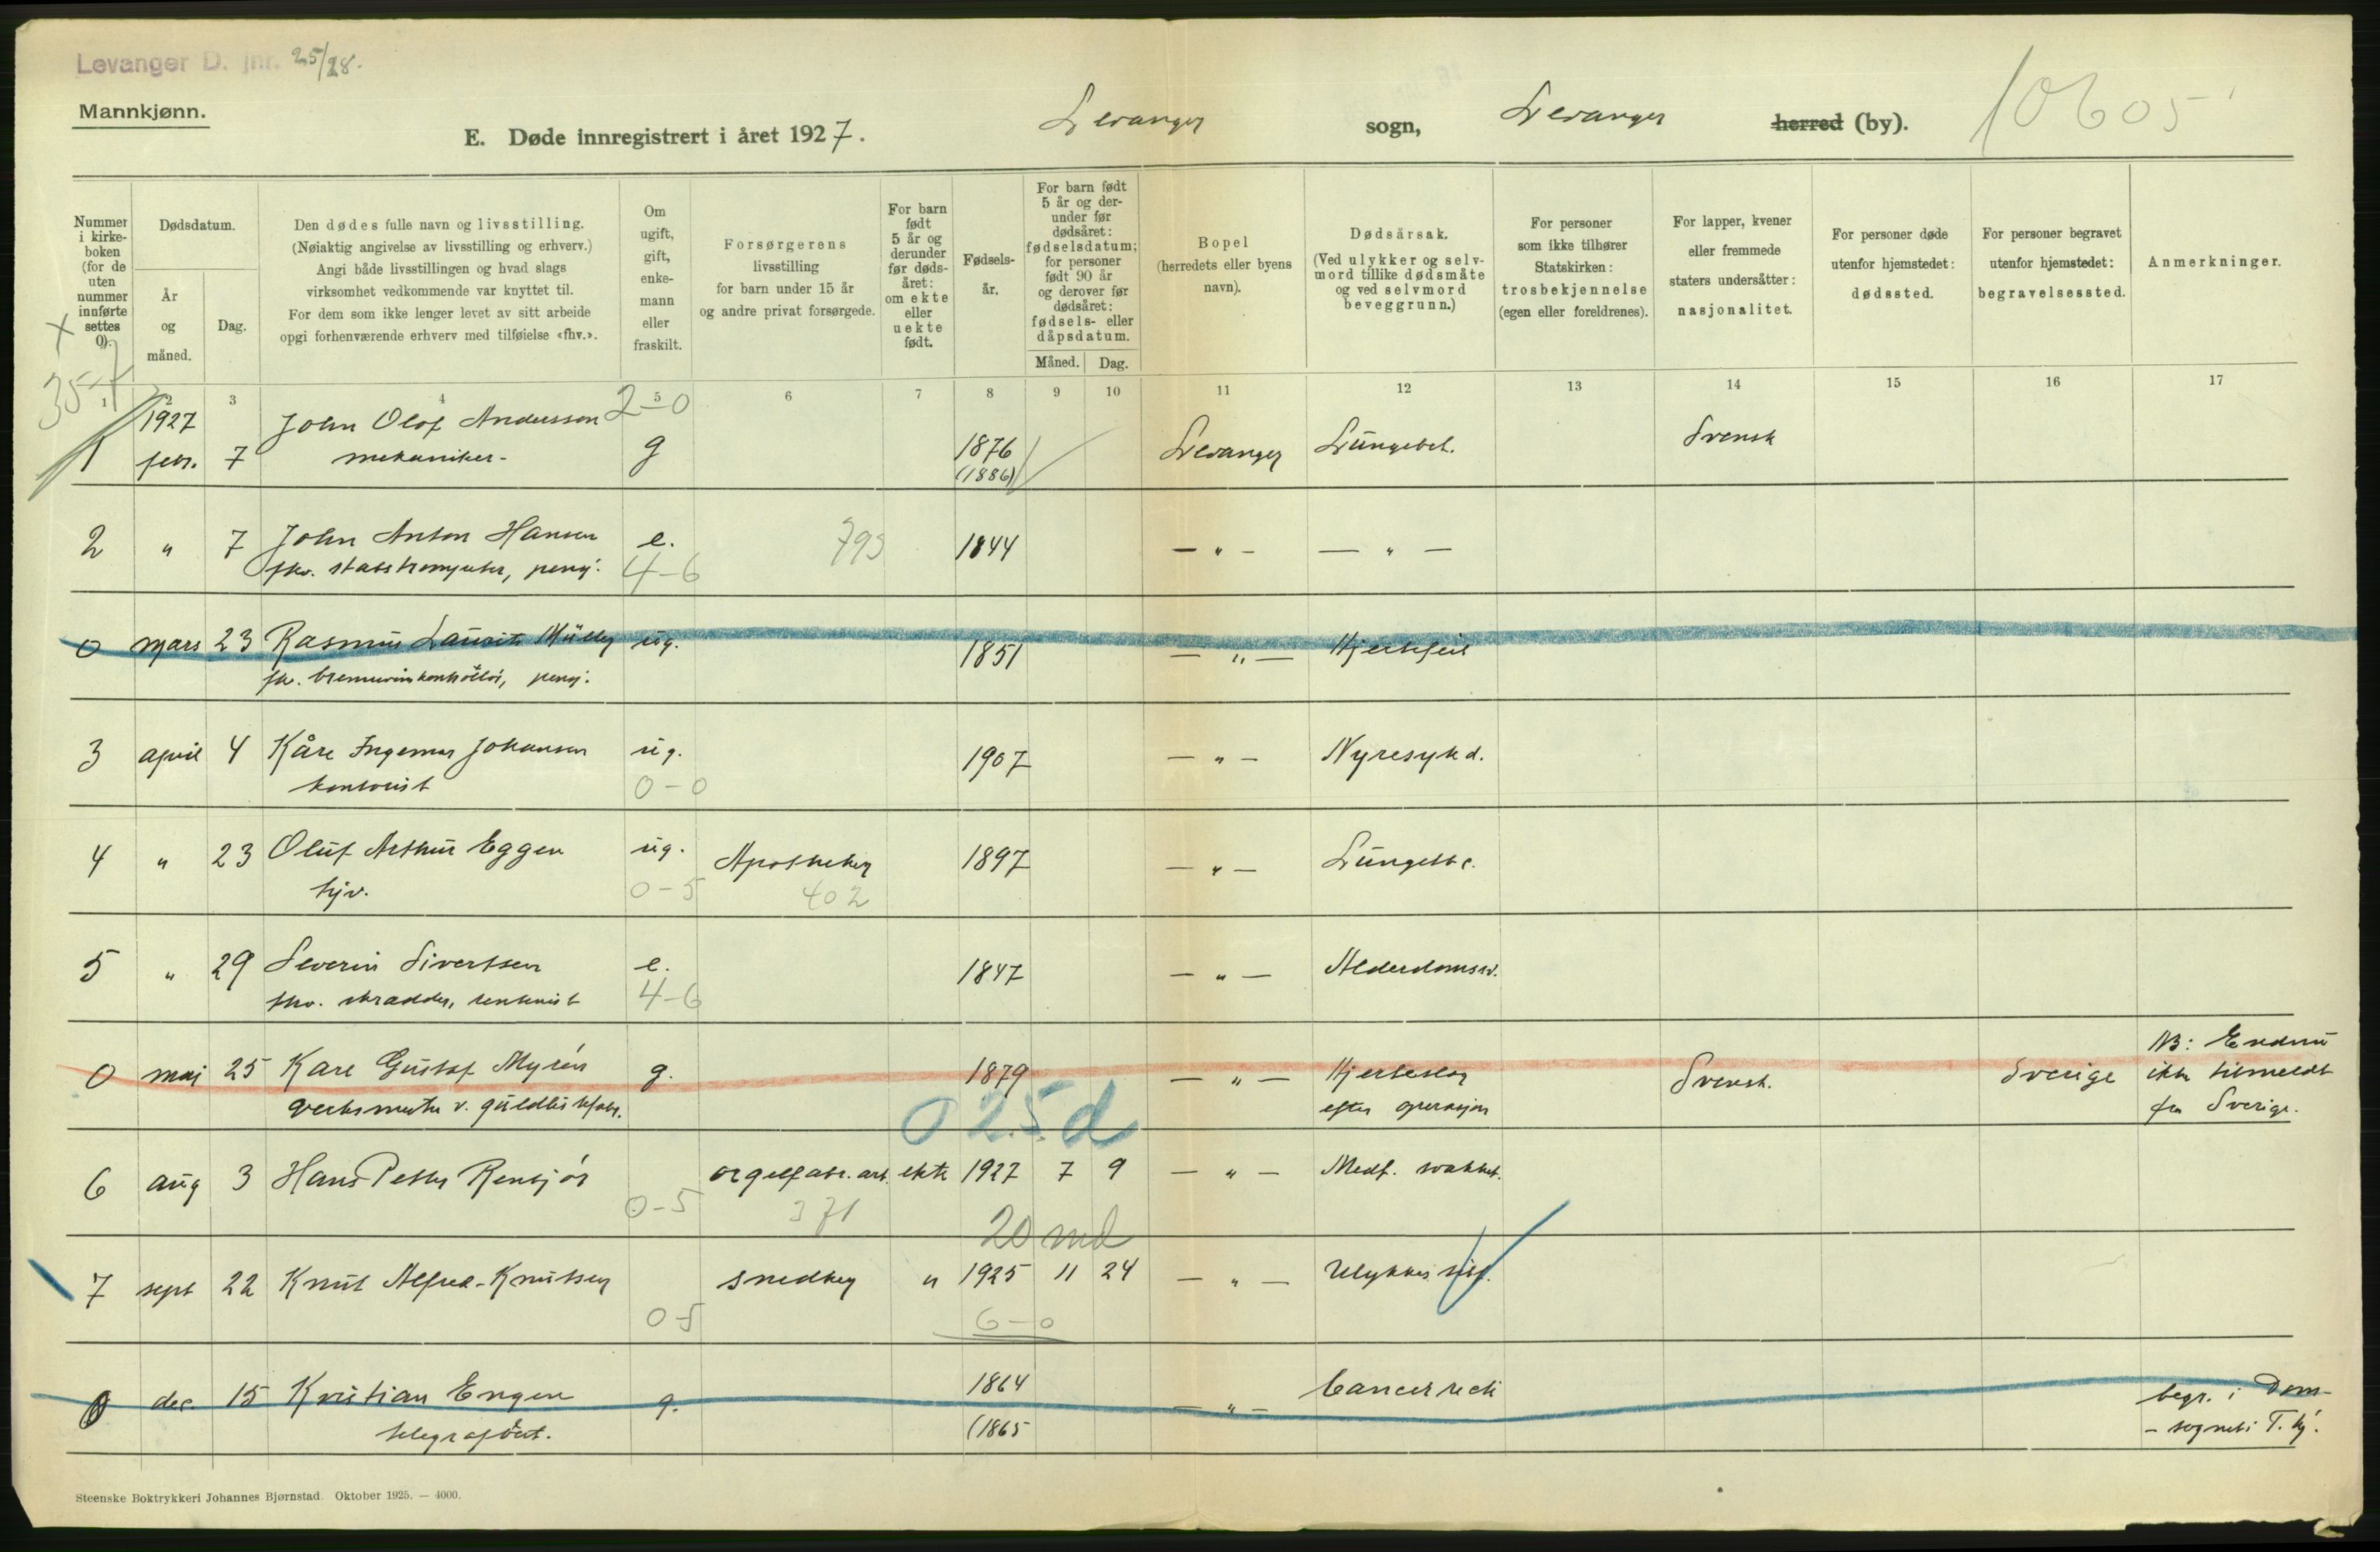 Levanger D. jnr. 25/28.
Mannkjønn.
E. Døde innregistrert i året 1927. Levanger sogn, Levanger herred (by). 10605
Nummer i kirkeboken (for de uten nummer innførte settes 0).
Dødsdatum.
År og måned.
Dag.
Den dødes fulle navn og livsstilling.
(Nøiaktig angivelse av livsstilling og erhverv.)
Angi både livsstillingen og hvad slags
virksomhet vedkommende var knyttet til.
For dem som ikke lenger levet av sitt arbeide
opgi forhenværende erhverv med tilføielse «fhv.».
Om ugift, gift, enkemann eller fraskilt.
Forsørgerens
livsstilling
for barn under 15 år
og andre privat forsørgede.
For barn født 5 år og derunder før dødsåret: om ekte eller uekte født.
Fødselsår.
For barn født 5 år og derunder før dødsåret: fødselsdatum; for personer født 90 år og derover før dødsåret: fødsels- eller dåpsdatum.
Måned. Dag.
Bopel
(herredets eller byens
navn).
Dødsårsak.
(Ved ulykker og selvmord tillike dødsmåte og ved selvmord beveggrunn.)
For personer
som ikke tilhører
Statskirken:
trosbekjennelse
(egen eller foreldrenes).
For lapper, kvener
eller fremmede
staters undersåtter:
nasjonalitet.
For personer døde
utenfor hjemstedet:
dødssted.
For personer begravet
utenfor hjemstedet:
begravelsessted.
Anmerkninger.
X
35-7
1 2 3 4 5 6 7 8 9 10 11 12 13 14 15 16 17
1927 John Olof Andersson 2-0
1 febr. 7 mekaniker- g 1876 Levanger Lungebet. Svensk
(1886)
2 " 7 John Anton Hansen e. 793 1844 - " - - " -
fhv. pensj. 4-6
0 mars 23 Rasmus Laurits Müller ug. 1851 - " - Hjertefeil
fhv. pensj.
3 april 4 Kåre Ingemar Johansen ug. 1907 - " - Nyresykd.
kontorist 0-0
4 " 23 Oluf Arthur Eggen ug. Apotheker 1897 - " -
hjv. 0-5 402
5 " 29 Severin Sivertsen e. 1847 - " - Alderdomssv.
fhv. skradder, rentenist 4-6
0 mai 25 Karl Gustaf Myrén g. 1879 - " - Hjerteslag Svensk. Sverige NB: Endnu
verksmester v. efter operasjon ikke tilmeldt
fra Sverige.
025d
6 aug 3 Hans Petter Rensjør orgelfabr. arb. ekte 1927 7 9 - " - Medf. svakhet.
0-5 371
20 md
7 sept 22 Knut Alfred Knutsen snedker " 1925 11 24 - " -
0-5 6-0
0 dec. 15 Kristian Engen g. 1864 - " - Cancer recti begr. i Dom-
telegrafbest. (1865 - sognet i T.hj.
Steenske Boktrykkeri Johannes Bjørnstad. Oktober 1925. — 4000.